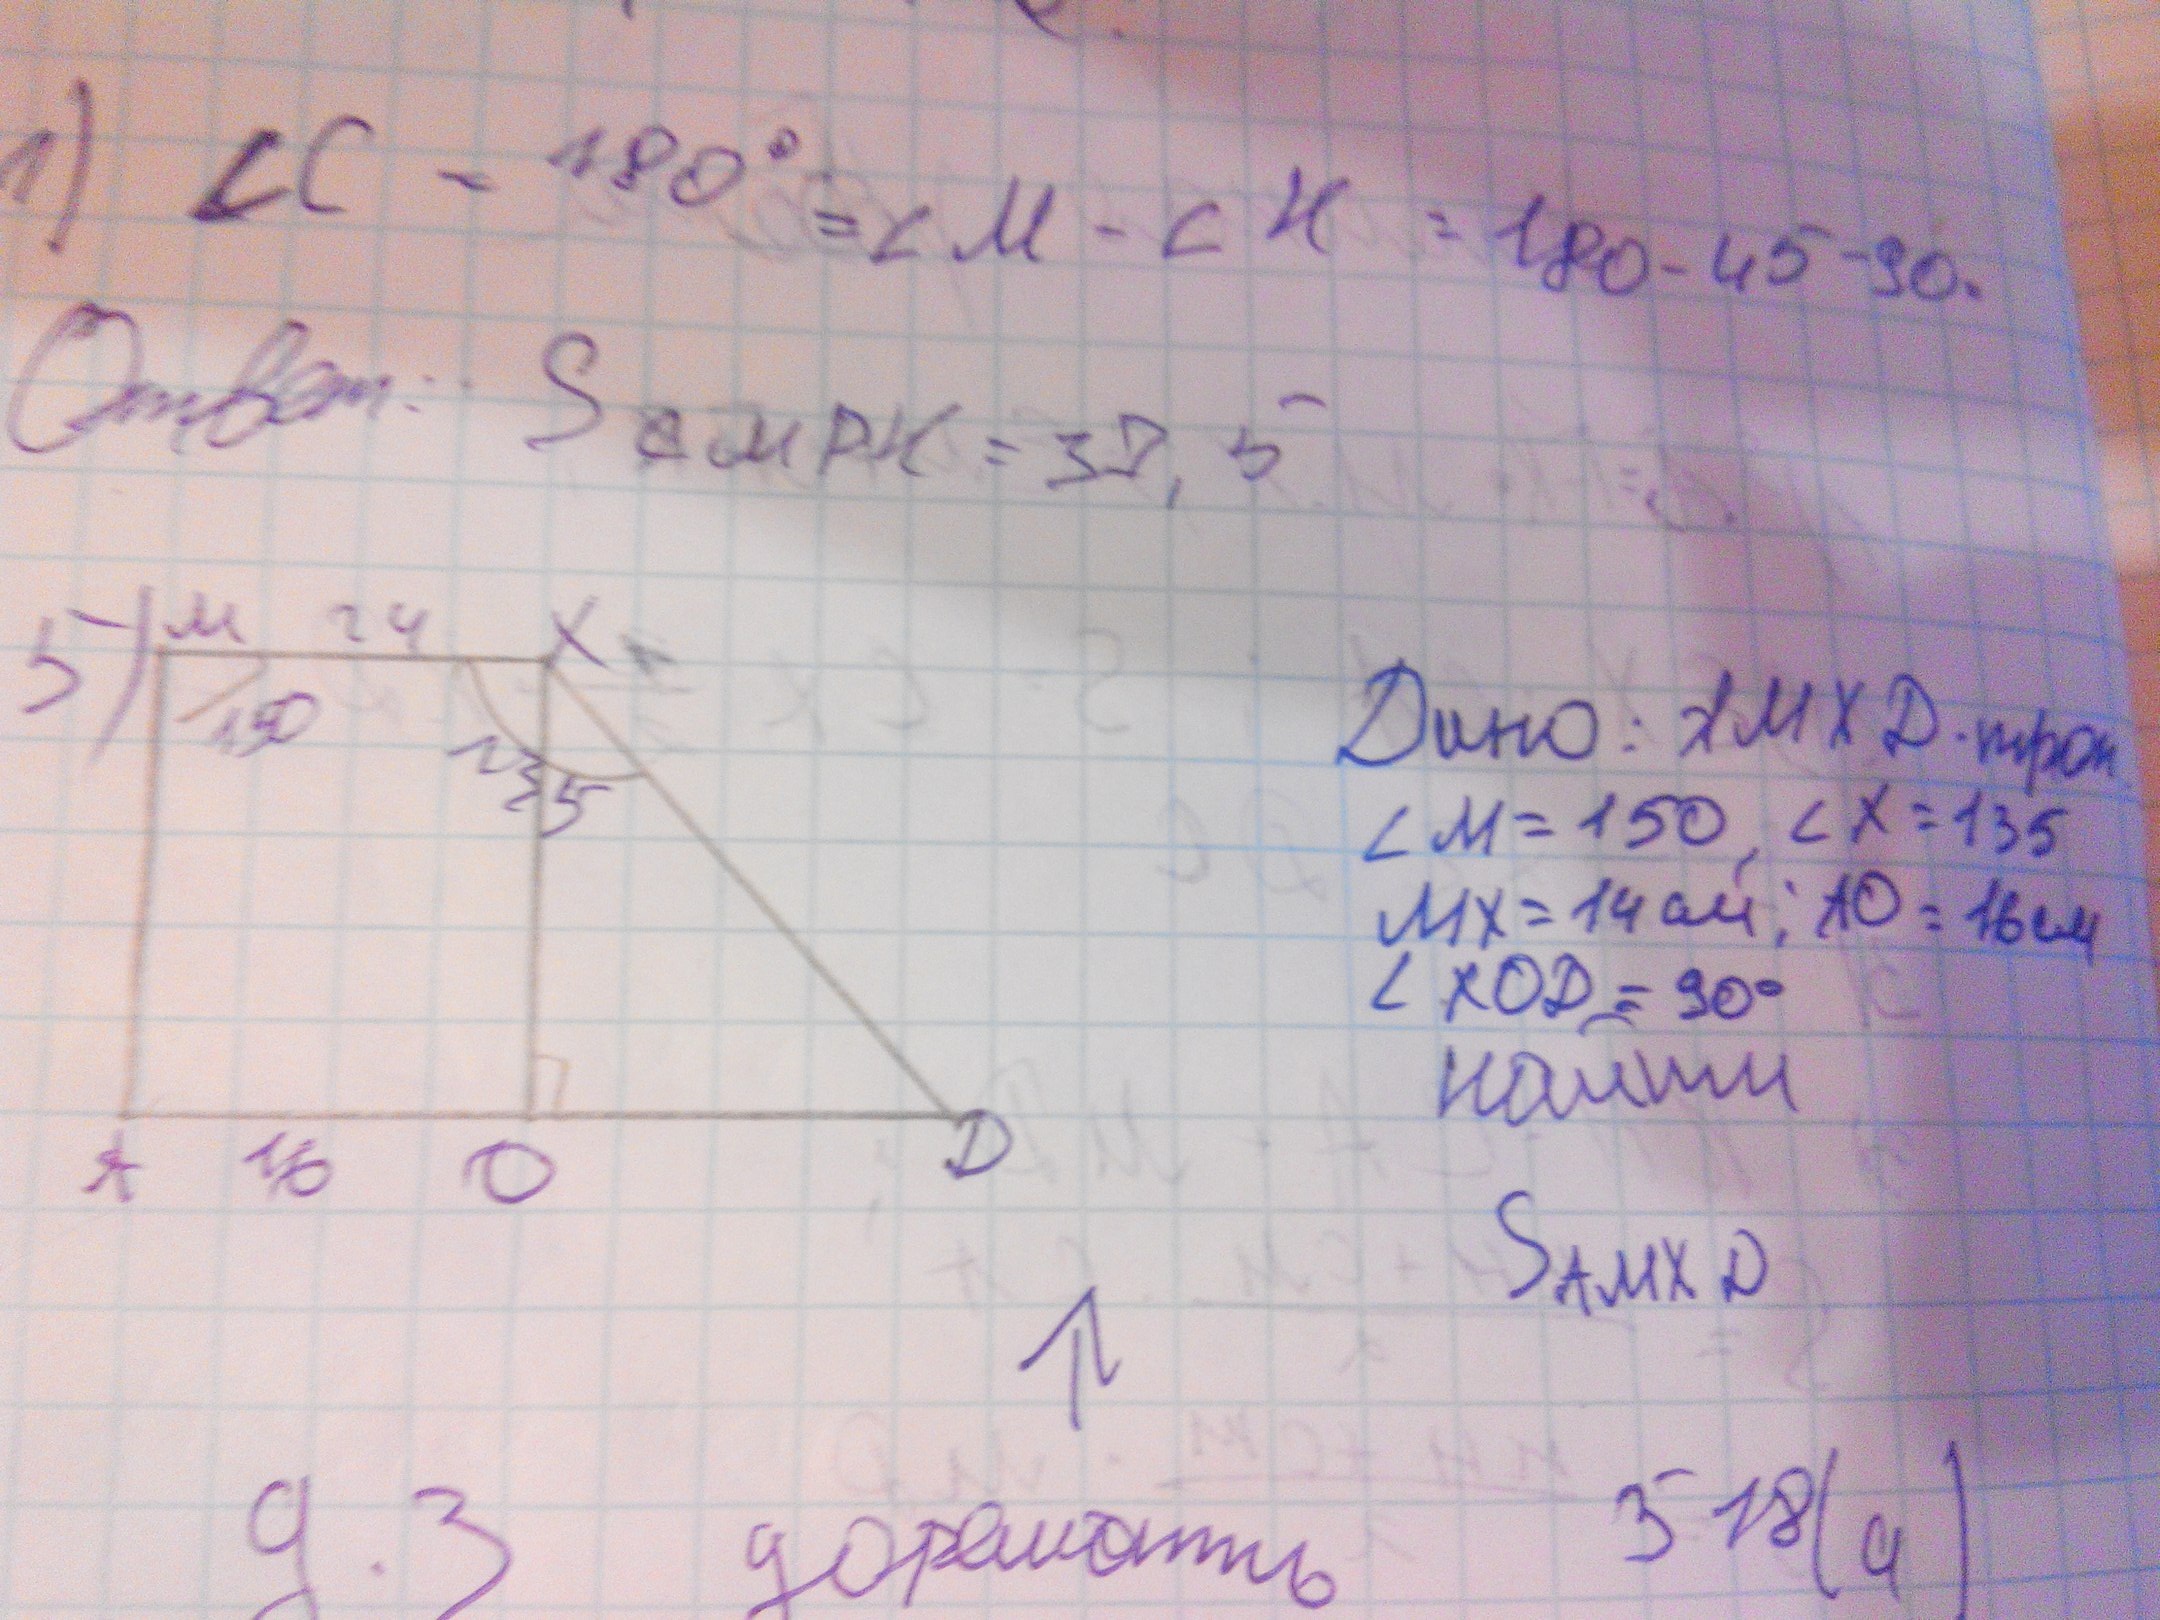 1) ∠C - 180° = ∠M - ∠K = 180 - 45 - 90.
Ответ: S смрк = 37,5
5) M 24 X
150
135
A 16 O D
Дано: AMXD - трап
∠M = 150, ∠X = 135
MX = 14 см; AO = 16 см
∠XOD = 90°
найти
S AMXD
g.з дорешать 518(а)